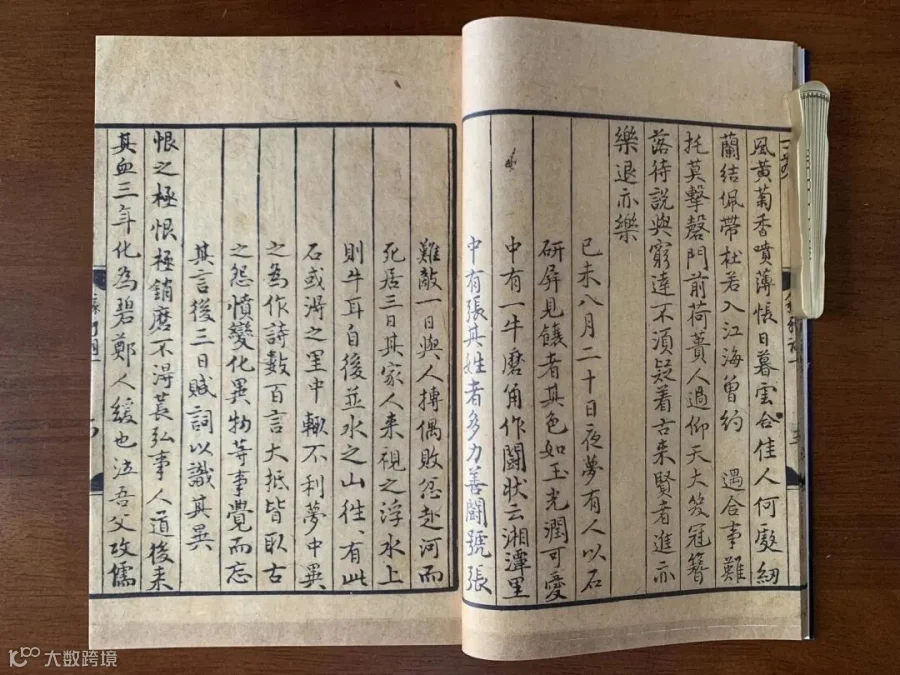 風黃菊香噴薄悵日暮雲合佳人何處紉
蘭結佩帶杜若入江海曾約 遇合事難
托莫擊磬門前荷蕢人過仰天大笑冠簪
落待說與窮達不須疑着古來賢者進亦
樂退亦樂
己未八月二十日夜夢有人以石
研屏見饟者其色如玉光潤可愛
中有一牛磨角作鬭狀云湘潭里
中有張其姓者多力善鬭號張
難敵一日與人搏偶敗忿赴河而
死居三日其家人来視之浮水上
則牛耳自後並水之山往有此
石或淂之里中輒不利夢中異
之為作詩數百言大抵皆取古
之怨憤變化異物等事覺而忘
其言後三日賦詞以識其異
恨之極恨極銷磨不淂萇弘事人道後来
其血三年化為碧鄭人緩也泣吾父攻儒
大数跨境